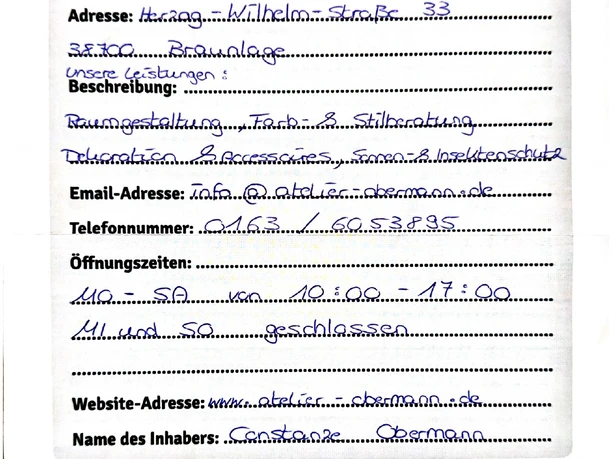 Adresse: Herzog-Wilhelm-Straße 33
38700 Braunlage
Unsere Leistungen:
Beschreibung:
Raumgestaltung, Farb- & Stilberatung
Dekoration & Accessoires, Sonnen- & Insektenschutz
Email-Adresse: info@atelier-obermann.de
Telefonnummer: 0163 / 6053895
Öffnungszeiten:
MO - SA von 10:00 - 17:00
MI und SO geschlossen
Website-Adresse: www.atelier-obermann.de
Name des Inhabers: Constanze Obermann